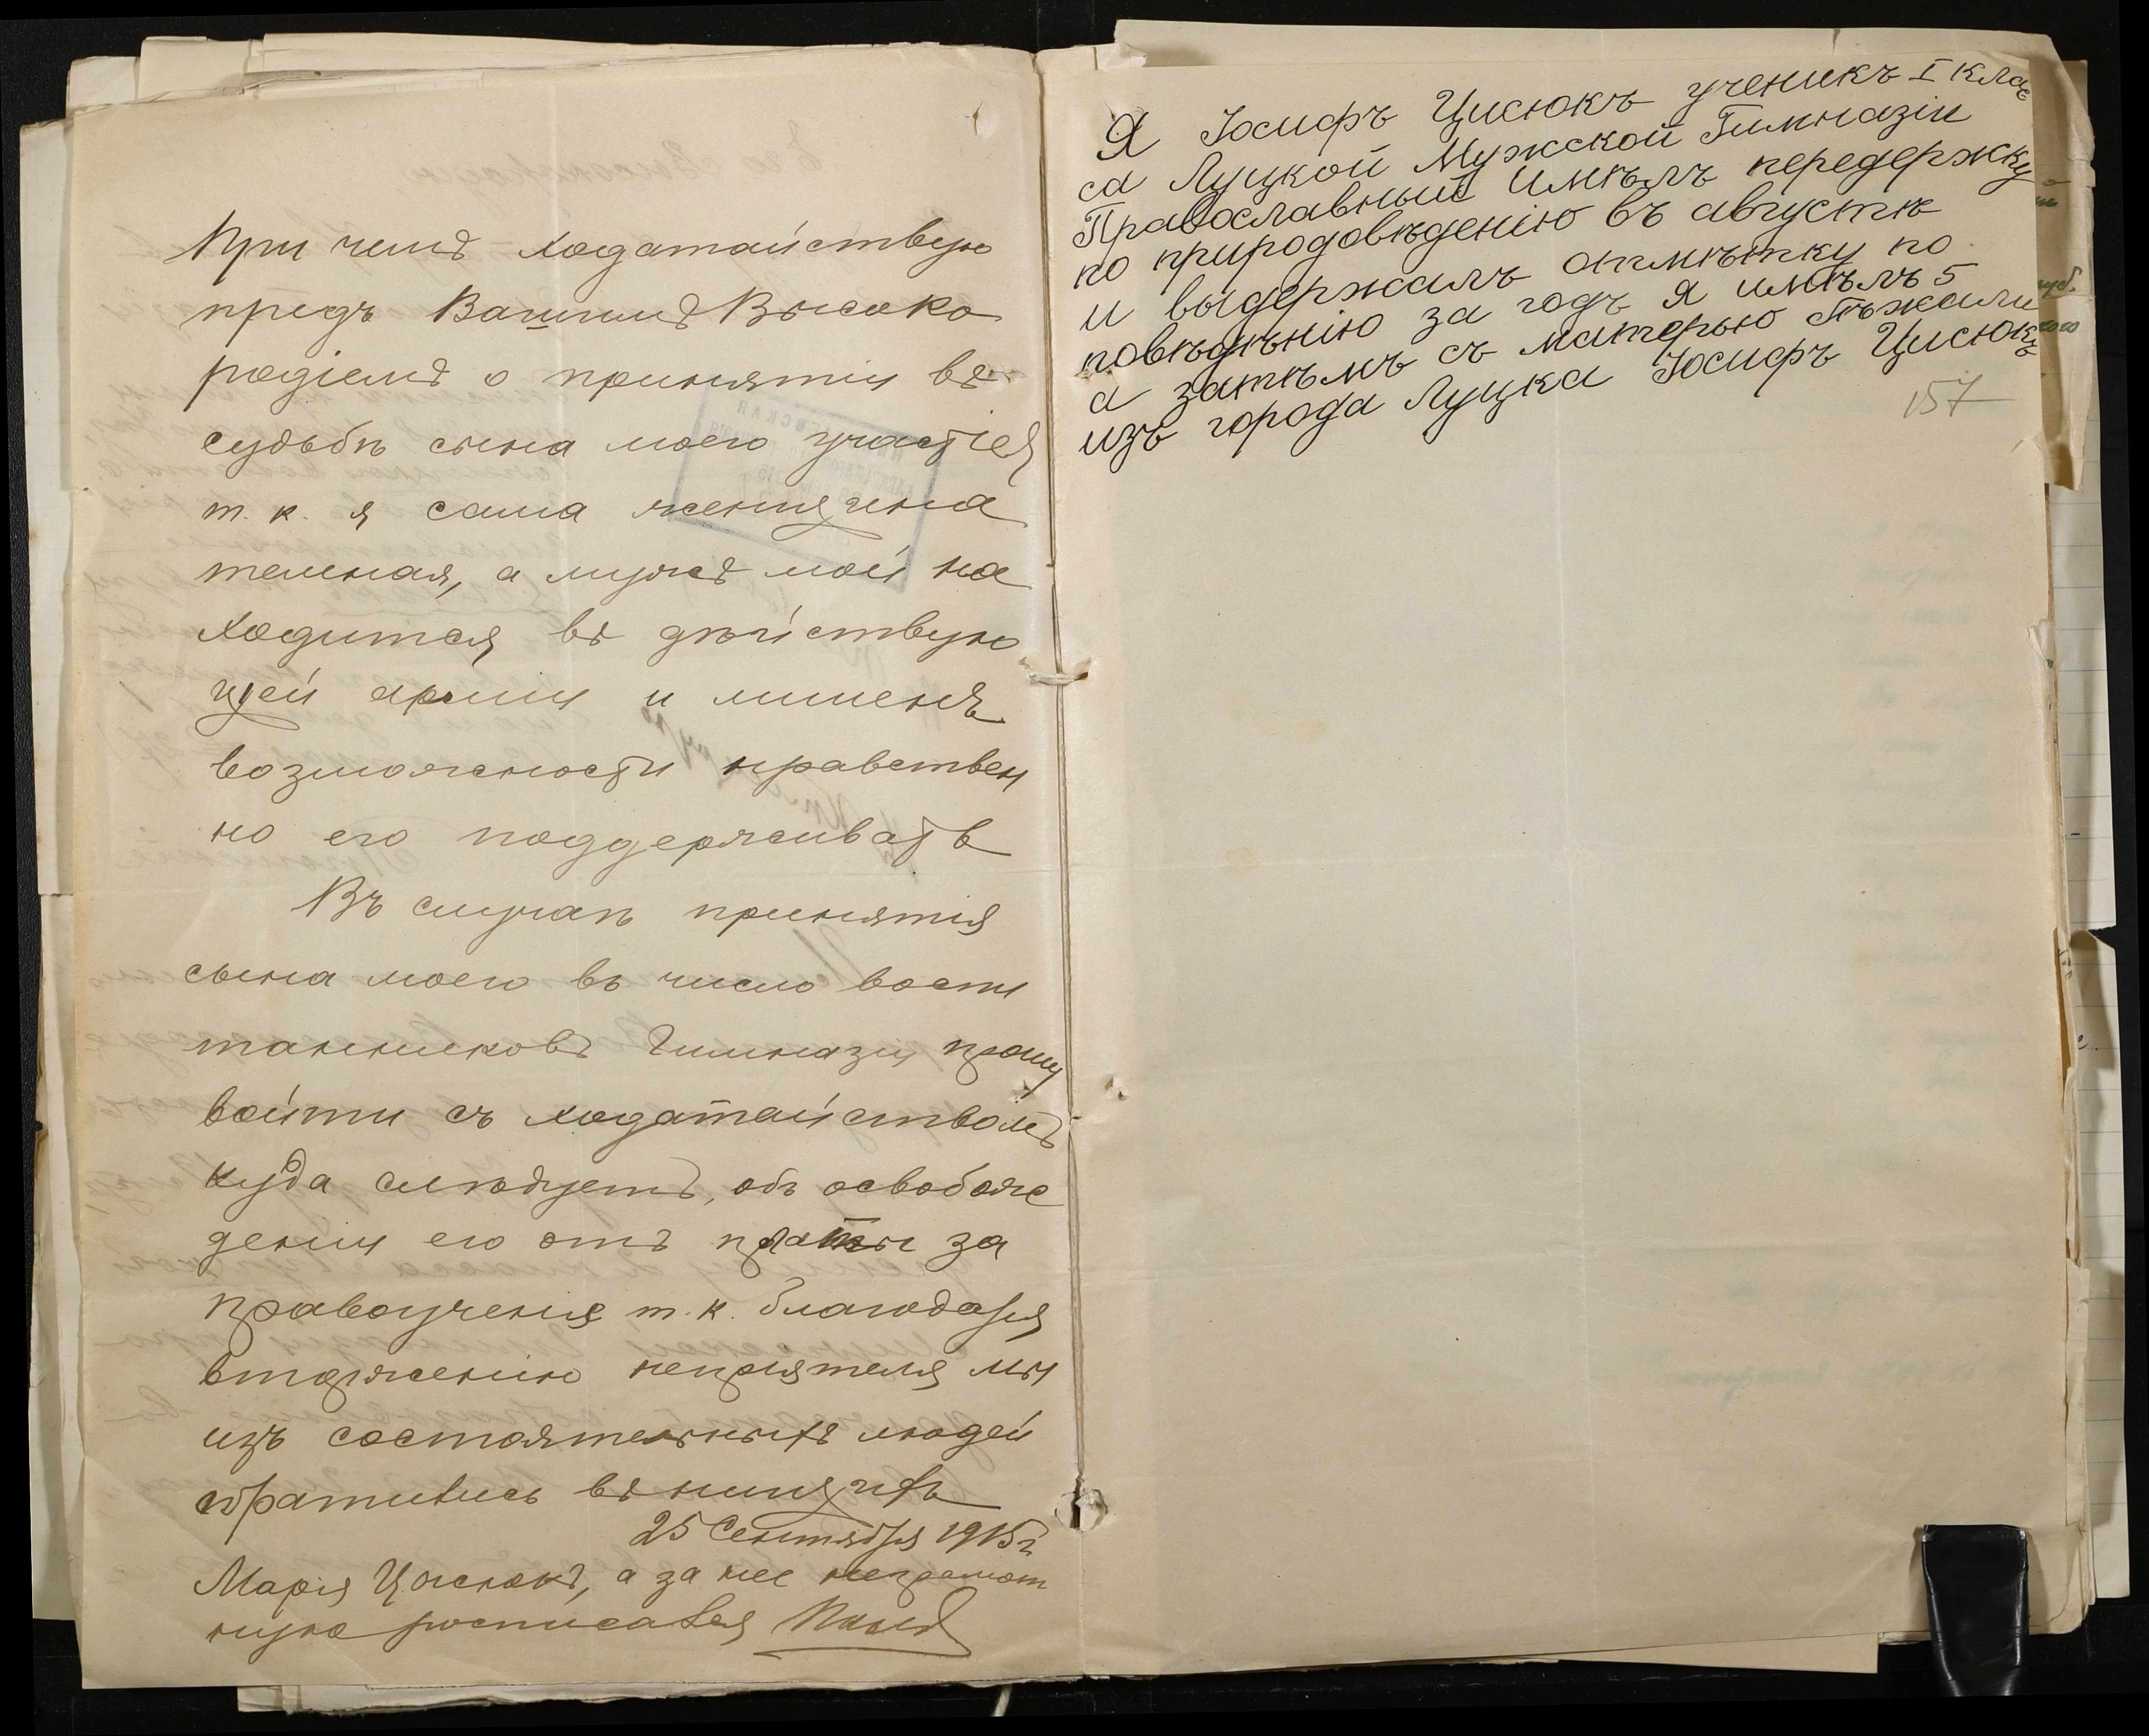 При чемъ ходатайствую
предъ Вашимъ Высоко
родіемъ о принятіи въ
судьбѣ сына моего участія
т. к. я сама женщина
темная, а мужъ мой на
ходится въ дѣйствую
щей арміи и лишенъ
возможности нравствен
но его поддерживать
Въ случаѣ принятія
сына моего въ число воспи
танниковъ Гимназіи прошу
войти съ ходатайствомъ
куда слѣдуетъ, объ освобож
деніи его отъ платы за
правоученіе т. к. благодаря
вторженію непріятеля мы
изъ состоятельныхъ людей
обратились въ нищихъ
25 Сентября 1915 г.
Марія Цисюкъ, а за нее неграмот
ную росписался
Я Іосифъ Цисюкъ ученикъ I клас
са Луцкой Мужской Гимназіи
Православный имѣлъ передержку
по природовѣденію въ августѣ
и выдержалъ отмѣтку по
поведѣнію за годъ я имѣлъ 5
а затѣмъ съ матерью бѣжали
изъ города Луцка Іосифъ Цисюкъ
157